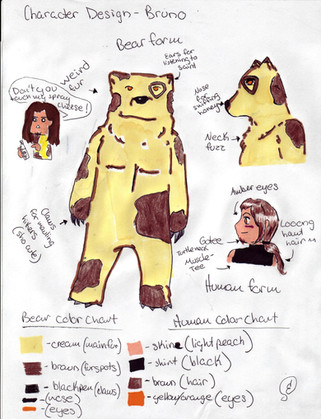 Character Design - Bruno
Bear form
Ears for
listening to
weird
fur
Don't you
touch my spray
cheese!
Nose for
sniffing
honey
Neck
fuzz
Claws
for mauling
hikers
(sho cute)
Amber eyes
Looong
haired
hair
Gotee
Turtleneck
Muscle-
Tee
Human form
Bear color chart
Human color chart
- cream (main fur)
- skin (light peach)
- brown (for spots)
- shirt (black)
- black pen (claws
- nose)
- brown (hair)
- (eyes)
- yellow/orange (eyes)